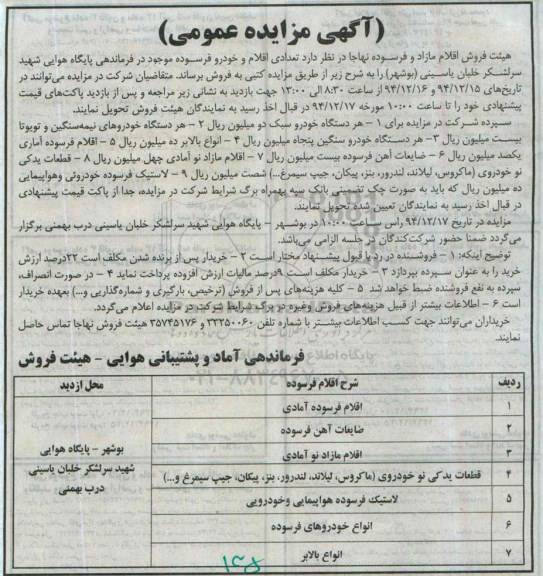 (آگهی مزایده عمومی)
هیئت فروش اقلام مازاد و فرسوده نهاجا در نظر دارد تعدادی اقلام و خودرو فرسوده موجود در فرماندهی پایگاه هوایی شهید
سرلشکر خلبان یاسینی (بوشهر) را به شرح زیر از طریق مزایده کتبی به فروش برساند. متقاضیان شرکت در مزایده می‌توانند در
تاریخ‌های ۹۴/۱۲/۱۵ و ۹۴/۱۲/۱۶ از ساعت ۸:۳۰ الی ۱۳:۰۰ جهت بازدید به نشانی زیر مراجعه و پس از بازدید پاکت‌های قیمت
پیشنهادی خود را تا ساعت ۱۰:۰۰ مورخه ۹۴/۱۲/۱۷ در قبال اخذ رسید به نمایندگان هیئت فروش تحویل نمایند.
سپرده شرکت در مزایده برای ۱ - هر دستگاه خودرو سبک دو میلیون ریال ۲ - هر دستگاه خودروهای نیمه‌سنگین و تویوتا
بیست میلیون ریال ۳- هر دستگاه خودرو سنگین پنجاه میلیون ریال ۴ - انواع بالابر ده میلیون ریال ۵ - اقلام فرسوده آماری
یکصد میلیون ریال ۶ - ضایعات آهن فرسوده بیست میلیون ریال ۷ - اقلام مازاد نو آمادی چهل میلیون ریال ۸ - قطعات یدکی
نو خودروی (ماکروس، لیلاند، لندرور، بنز، پیکان، جیپ سیمرغ...) شصت میلیون ریال ۹ - لاستیک فرسوده خودروئی وهواپیمایی
ده میلیون ریال که باید به صورت چک تضمینی بانک سپه بهمراه برگ شرایط شرکت در مزایده، جدا از پاکت قیمت پیشنهادی
در قبال اخذ رسید به نمایندگان تعیین شده تحویل نمایند.
مزایده در تاریخ ۹۴/۱۲/۱۷ راس ساعت ۱۰:۰۰ در بوشهر - پایگاه هوایی شهید سرلشکر خلبان یاسینی درب بهمنی برگزار
می‌گردد ضمنا حضور شرکت‌کنندگان در جلسه الزامی می‌باشد.
توضیح اینکه: ۱ - فروشنده در رد یا قبول پیشنهاد مختار است ۲ - خریدار پس از برنده شدن مکلف است ۲۲درصد ارزش
خرید را به عنوان سپرده بپردازد ۳ - خریدار مکلف است ۹درصد مالیات ارزش افزوده پرداخت نماید ۴ - در صورت انصراف،
سپرده به نفع فروشنده ضبط خواهد شد ۵ - کلیه هزینه‌های پس از فروش (ترخیص، بارگیری و شماره‌گذاری و...) بعهده خریدار
است ۶ - اطلاعات بیشتر از قبیل هزینه‌های فروش وغیره در برگ شرایط شرکت در مزایده اعلام می‌گردد.
خریداران می‌توانند جهت کسب اطلاعات بیشتر با شماره تلفن ۳۳۲۵۰۰۶۰ و ۳۵۷۴۵۱۷۶ هیئت فروش نهاجا تماس حاصل
نمایند.
فرماندهی آماد و پشتیبانی هوایی - هیئت فروش
ردیف شرح اقلام فرسوده محل ازدید
۱ اقلام فرسوده آمادی
۲ ضایعات آهن فرسوده
۳ اقلام مازاد نو آمادی
۴ قطعات یدکی نو خودروی (ماکروس، لیلاند، لندرور، بنز، پیکان، جیپ سیمرغ و...)
۵ لاستیک فرسوده هواپیمایی وخودرویی
۶ انواع خودروهای فرسوده
۷ انواع بالابر
بوشهر - پایگاه هوایی
شهید سرلشکر خلبان یاسینی
درب بهمنی